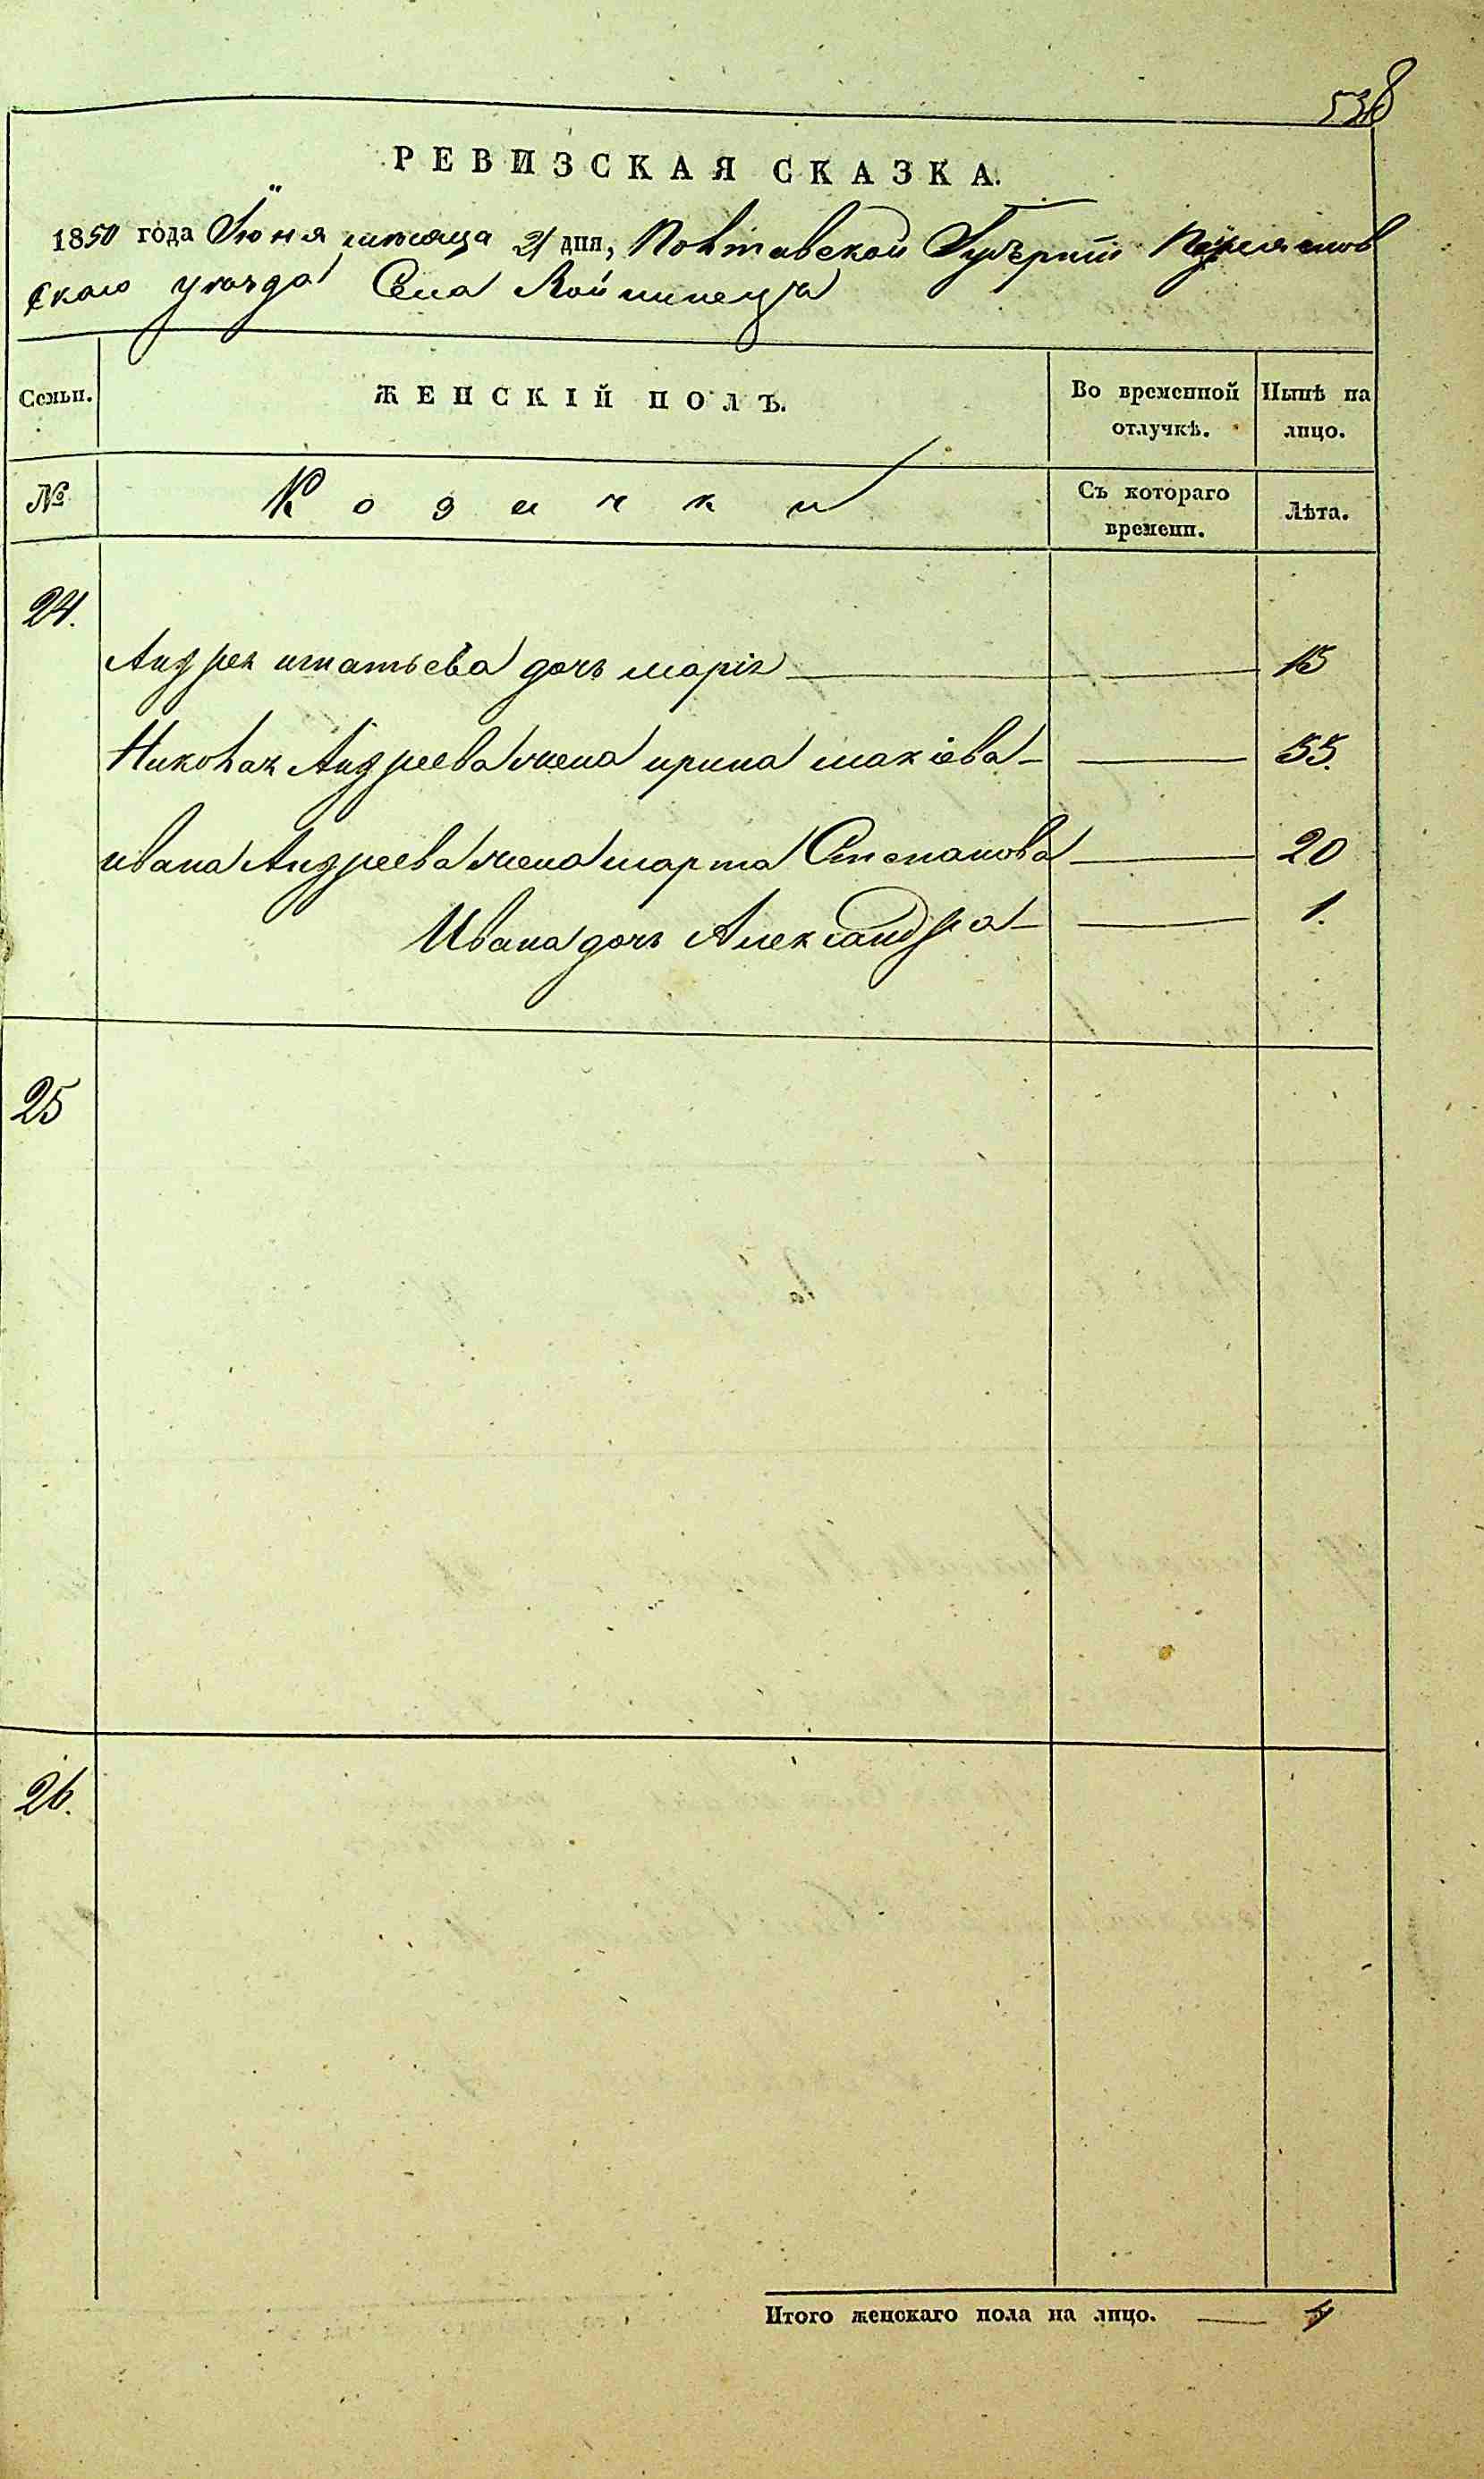 538
РЕВИЗСКАЯ СКАЗКА.
1850 года Іюня месяца 21 дня, Полтавской Губерніи Переяслов
скаго уезда Села Войтинецъ
Семьи.
ЖЕНСКІЙ ПОЛЪ.
Во временной
отлучкѣ.
Нынѣ на
лицо.
№
Козачки
Съ котораго
времени.
Лѣта.
24.
Андрея игнатьева дочь марія 15
Николая Андреева жена ирина 55.
ивана Андреева жена марта Степанова 20
Ивана дочь Александра 1.
25
26.
Итого женскаго пола на лицо. 4